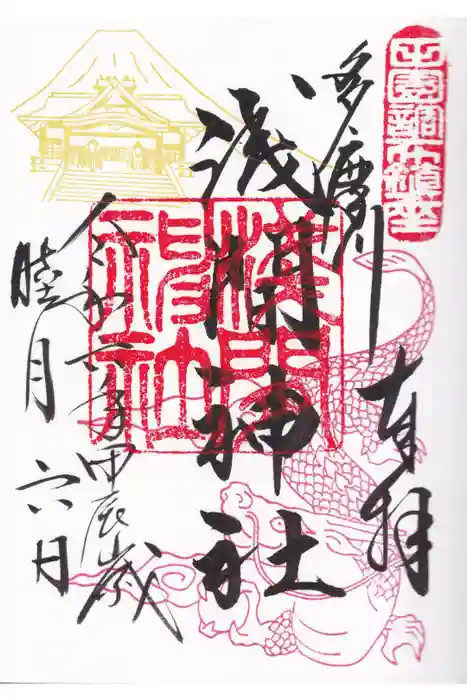 田園調布鎮座
奉拝
多摩川
浅間神社
淺間
神社
令和六年甲辰歳
睦月六日